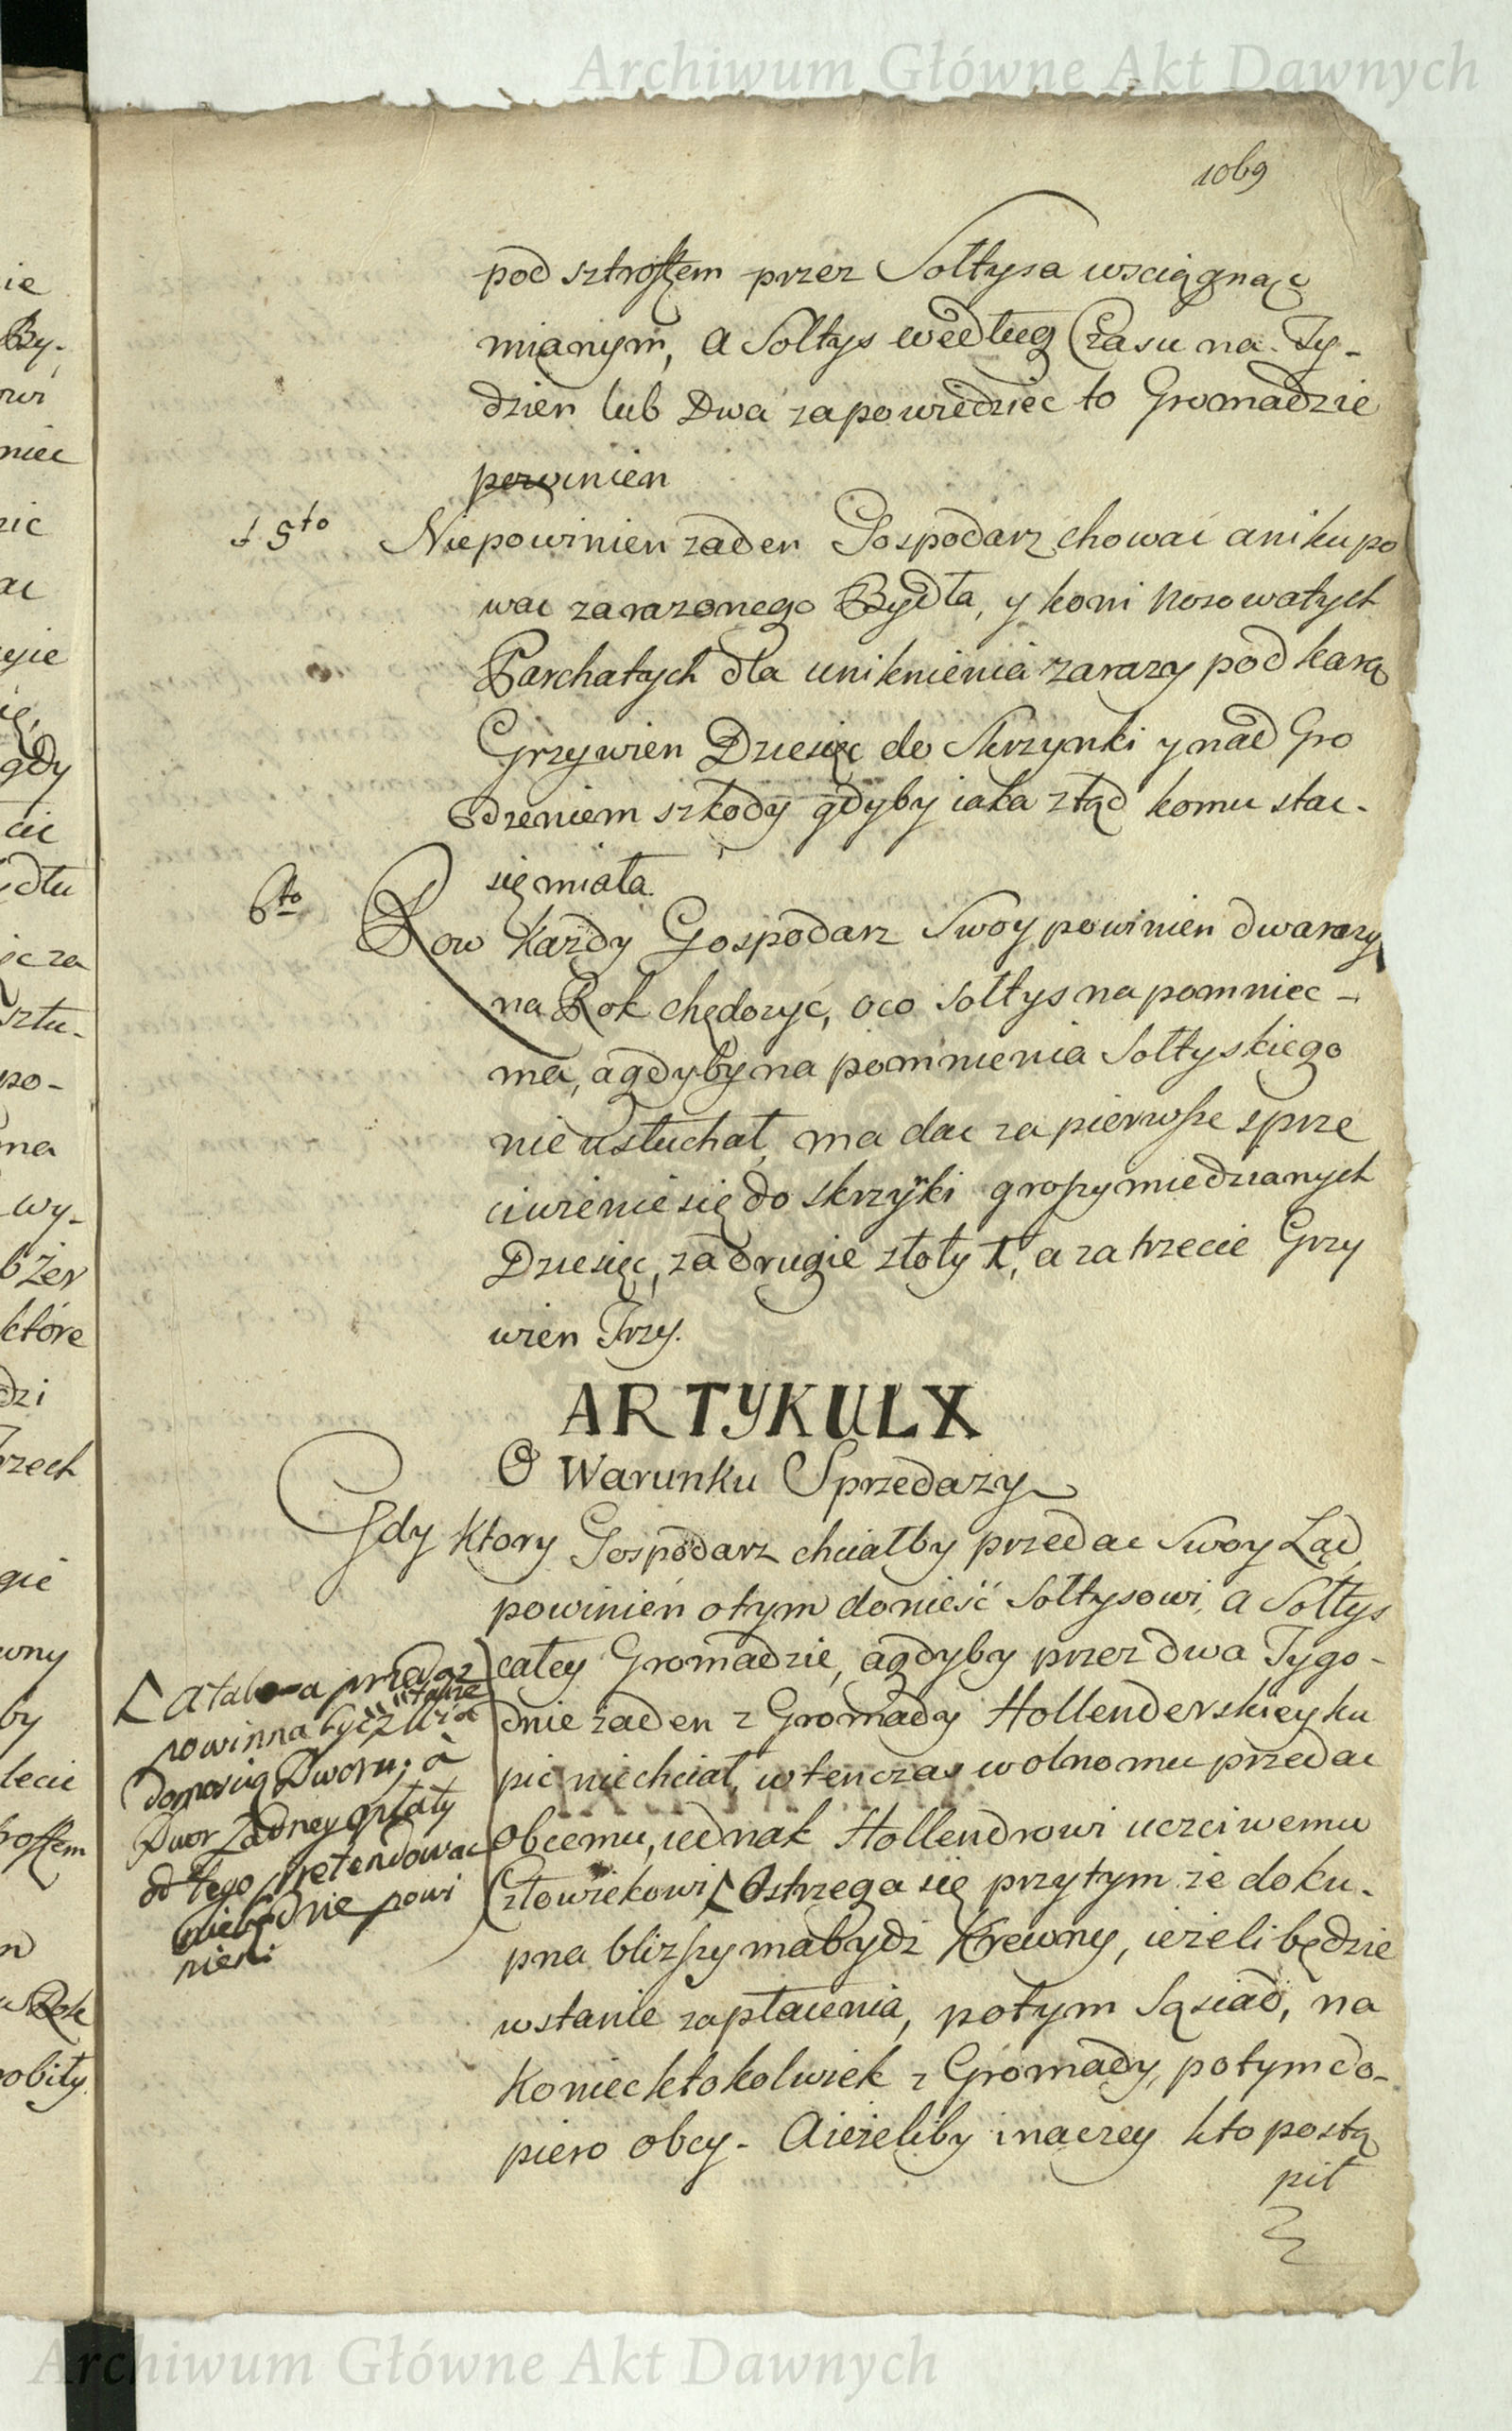 Archiwum Główne Akt Dawnych
1069
pod sztroffem przez Sołtysa wsciągnąc
mianym, a Sołtys według Czasu na Ty-
dzien lub Dwa zapowiedziec to Gromadzie
powinien
5to Niepowinien zaden Gospodarz chowac ani kupo
wac zarazonego Bydła, y koni Nosowatych
Parchatych dla uniknienia zarazy pod karą
Grzywien Dziesięc do Skrzynki y nad Gro
dzeniem szkody gdyby iaka ztąd komu stac-
się miała.
6to Row Kazdy Gospodarz Swoy powinien dwa razy
na Rok chędozyć, oco Sołtys napomniec-
ma, a gdyby na pomnienia Sołtyskiego
nie usłuchał, ma dac za pierwsze sprze
ciwienie się do skrzyki groszy miedzianych
Dziesięc, za drugie złoty 1, a za trzecie Grzy
wien Trzy.
ARTYKUŁ X
O Warunku Sprzedazy
Gdy Ktory Gospodarz chciałby przedac Swoy Ląd,
powinień otym donieść Sołtysowi, a Sołtys
całey Gromadzie, a gdyby przez dwa Tygo-
dnie zaden z Gromady Hollenderskiey ku
pic niechciał, wtenczas wolno mu przedac
obcemu, iednak Hollendrowi uczciwemu
Człowiekowi Ostrzega się przytym ze doku-
pna blizszy ma bydz Krewny, iezeli będzie
wstanie zapłacenia, potym Sąsiad, na
Koniec ktokolwiek z Gromady, potym do-
piero obcy. A iezeliby inaczey kto postą
pił
a przedaz
powinna być z
doniosią Dworu; à
Dwor Zadney opłaty
od tego pretendowac
niebędzie powi
nien:
ie
By-
owi
niec
zic
ac
yie
ię,
gdy
cic
ydłu
ic za
sztu-
po-
na
wy-
b Zer
które
dzi
Trzech
gie
wny
by
lecie
troffem
n
w Rok
robiły.
Archiwum Główne Akt Dawnych